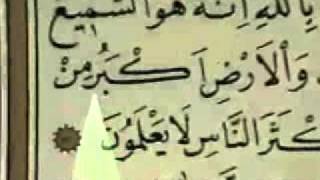 بِاللهِ اِنَّهُ هُوَ السَّمِيعُ
وَالْاَرْضِ اَكْبَرُ مِنْ
كْثَرَ النَّاسِ لَا يَعْلَمُونَ